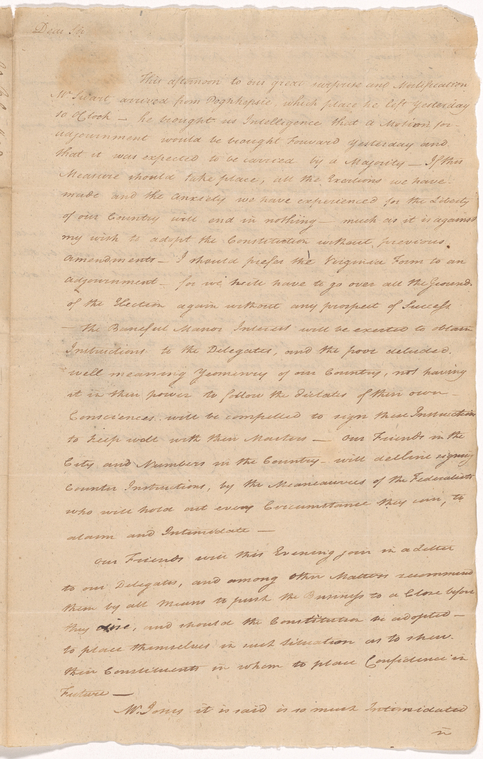 Dear Sir
This afternoon to our great surprise and Mortification
Mr arrived from Poghkepsie, which place he left yesterday
10 oClock — he brought us Intelligence that a Motion for
adjournment would be brought forward yesterday and
that it was expected to be carried by a Majority — If this
Measure should take place, all the Exertions we have
made and the Anxiety we have experienced for the Liberty
of our Country will end in nothing — much as it is against
my wish to adopt the Constitution without previous
amendments — I should prefer the Virginia Form to an
adjournment — for we here have to go over all the Ground
of the Election again without any prospect of Success
— the Baneful Manor Interest will be exerted to obtain
Instructions to the Delegates, and the poor deluded
well meaning Yeomenry of our Country, not having
it in their power to follow the dictates of their own
Consciences, will be compelled to sign these Instructions
to keep well with their Masters — Our Friends in the
City and Numbers in the Country will decline signing
Counter Instructions, by the Maneauvres of the Federalists
who will hold out every Circumstance they can, to
alarm and Intimidate —
Our Friends will this Evening join in a Letter
to our Delegates, and among other Matters recommend
them by all Means to push the Business to a Close before
they rise, and should the Constitution be adopted —
to place themselves in such Situation as to shew
their Constituents in whom to place Confidence in
Future —
Mr. Jones it is said is so much Intimidated